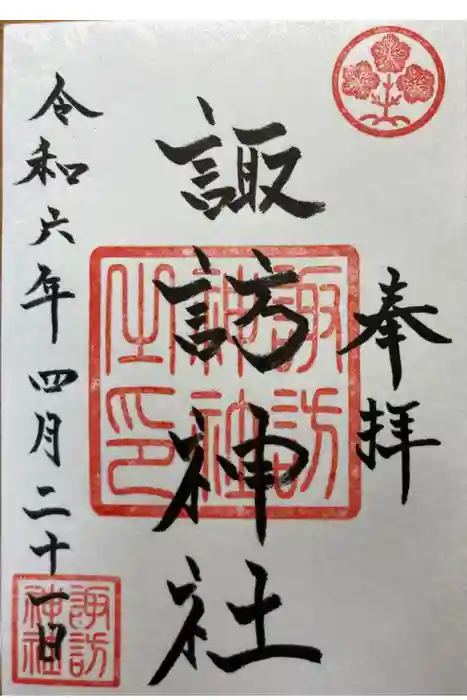 奉拝
諏訪神社
令和六年四月二十一日
諏訪
神社
之印
諏訪
神社